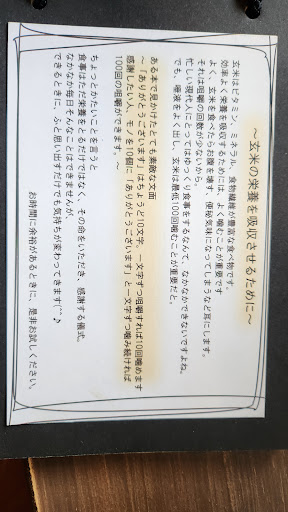 ～玄米の栄養を吸収させるために～
玄米はビタミン、ミネラル、食物繊維が豊富な食べ物です。
効率よく栄養を吸収するためには、よく噛むことが重要です
よく、玄米を食べたらお腹を壊す、便秘気味になってしまうなど耳にします。
それは咀嚼の回数が少ないから。
忙しい現代人にとってはゆっくり食事をするなんて、なかなかできないですよね。
でも、唾液をよく出し、玄米は最低100回噛むことが重要だと。
ある本で見かけたとても素敵な文面
～「ありがとうございます」はちょうど10文字。一文字ずつ咀嚼すれば10回噛めます
感謝したい人、モノを10個に「ありがとうございます」と一文字ずつ噛み続ければ
100回の咀嚼ができます。～
ちょっとかたいことを言うと
食事はただ栄養をとるだけではなく、その命をいただき、感謝する儀式。
なかなか毎日そんなことはできませんが、
できるときに、ふと思い出すだけでも気持ちが変わってきます(^^♪
お時間に余裕があるときに、是非お試しください。